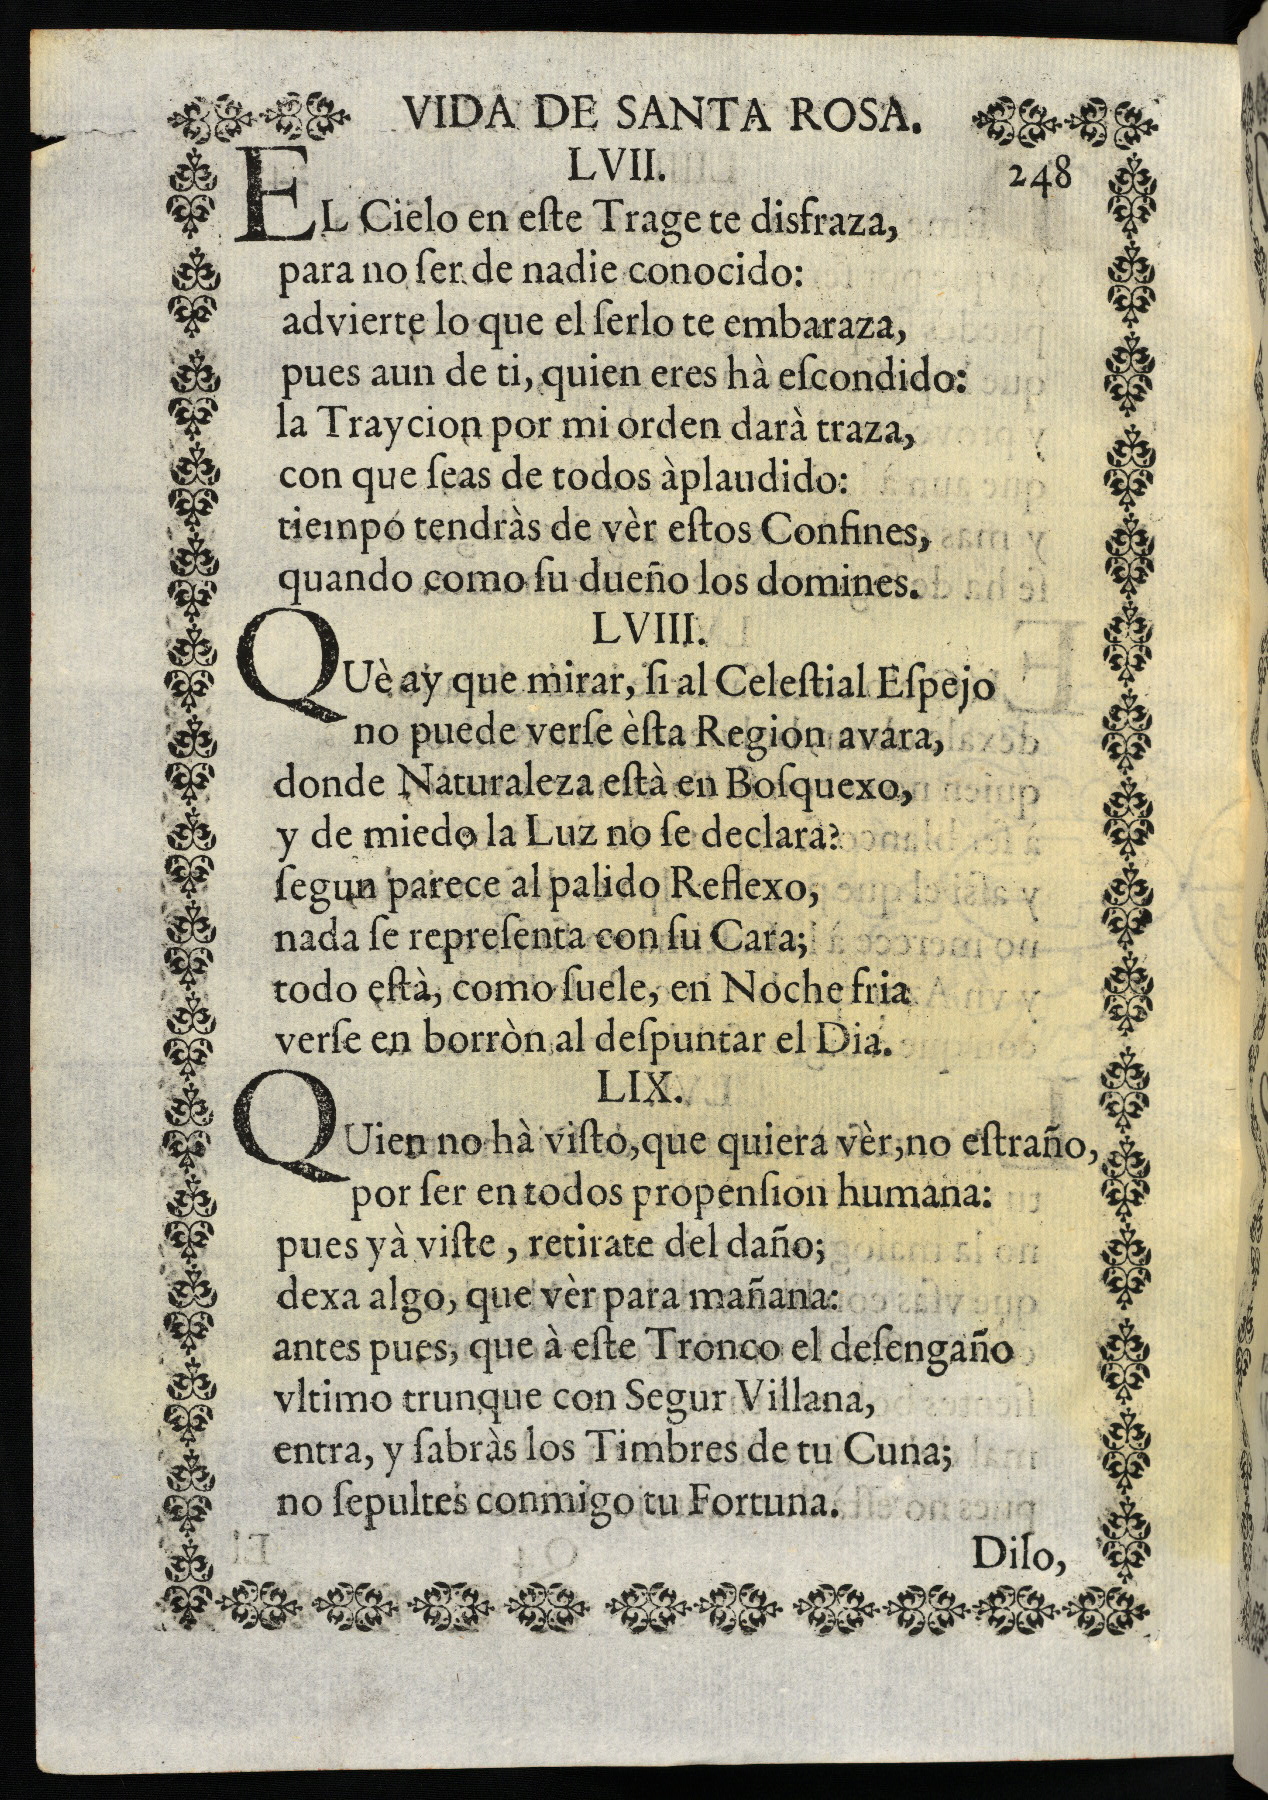 VIDA DE SANTA ROSA.
LVII.
248
EL Cielo en eſte Trage te disfraza,
para no ſer de nadie conocido:
advierte lo que el ſerlo te embaraza,
pues aun de ti, quien eres hà eſcondido:
la Traycion por mi orden darà traza,
con que ſeas de todos àplaudido:
tiempo tendràs de vèr eſtos Confines,
quando como ſu dueño los domines.
LVIII.
QUè ay que mirar, ſi al Celeſtial Eſpejo
no puede verſe èſta Region avara,
donde Naturaleza eſtà en Boſquexo,
y de miedo la Luz no ſe declara?
ſegun parece al palido Reflexo,
nada ſe repreſenta con ſu Cara;
todo eſtà, como ſuele, en Noche fria
verſe en borròn al deſpuntar el Dia.
LIX.
QUien no hà viſto, que quiera vèr, no eſtraño,
por ſer en todos propenſion humana:
pues yà viſte, retirate del daño;
dexa algo, que vèr para mañana:
antes pues, que à eſte Tronco el deſengaño
vltimo trunque con Segur Villana,
entra, y ſabràs los Timbres de tu Cuna;
no ſepultes conmigo tu Fortuna.
Dilo,